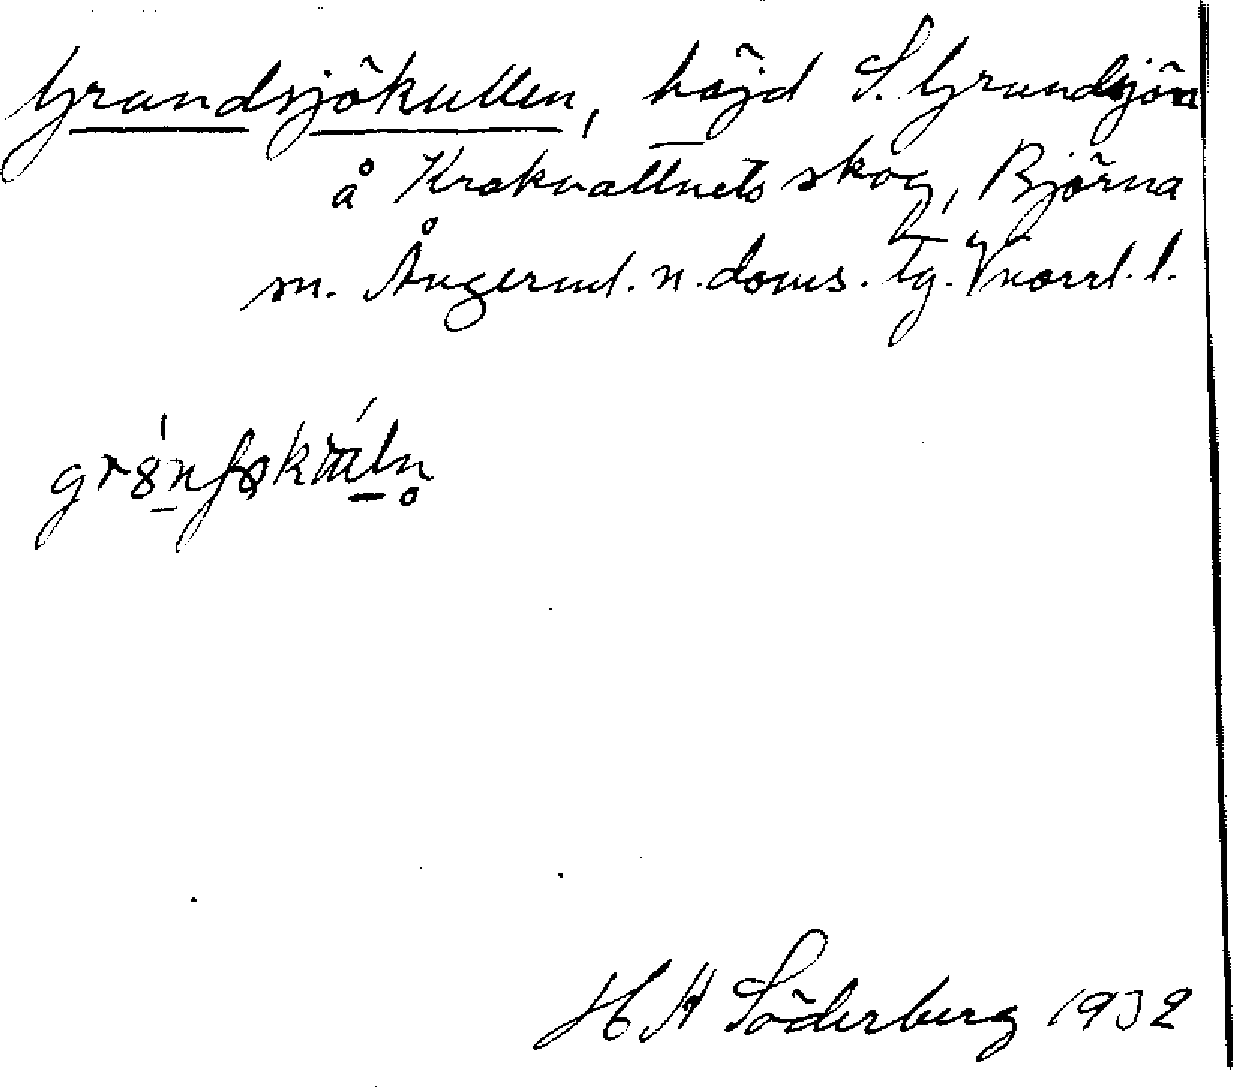 Grundsjökullen, höjd S. Grundsjön
å Krokvattnets skog, Björna
sn. Ångerml. n. doms. tg. Vnorrl. l.
H A Söderberg 1932